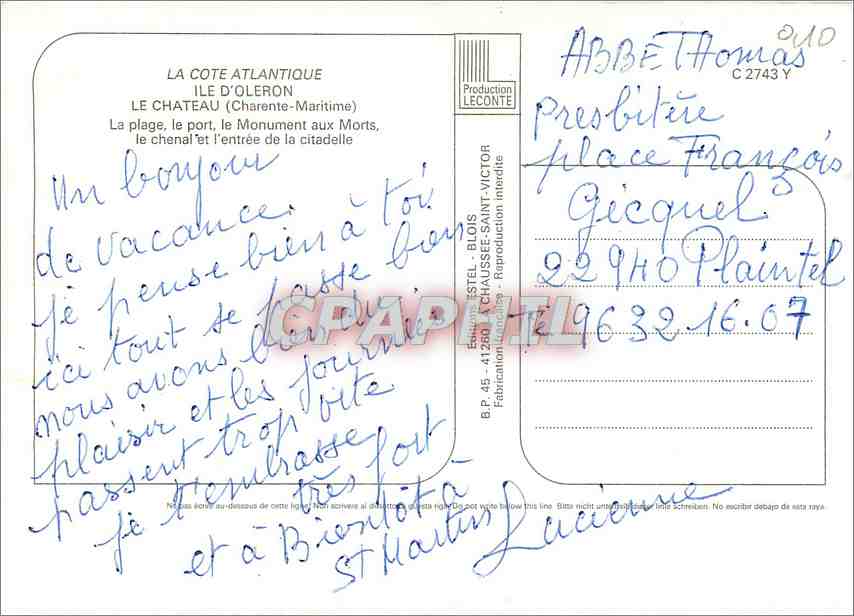 LA COTE ATLANTIQUE
ILE D'OLERON
LE CHATEAU (Charente-Maritime)
La plage, le port, le Monument aux Morts,
le chenal et l'entrée de la citadelle
un bonjour
de vacance.
je pense bien à toi.
ici tout se passe bien
nous avons bien du
plaisir et les journées
passent trop vite
je t'embrasse
très fort
et à Bientôt à
St Martin
Lucienne
Production
LECONTE
Editions ESTEL - BLOIS
B.P. 45 - 41260 LA CHAUSSEE-SAINT-VICTOR
Fabrication française - Reproduction interdite
010
ABBE THomas
C 2743 Y
Presbitère
place François
Gicquel.
22940 Plaintel
Té 96 32.16.07
Ne pas écrire au-dessous de cette ligne. Non scrivere al disotto di questa riga. Do not write below this line. Bitte nicht unterhalb dieser linie schreiben. No escribir debajo de esta raya.
CPAPHIL